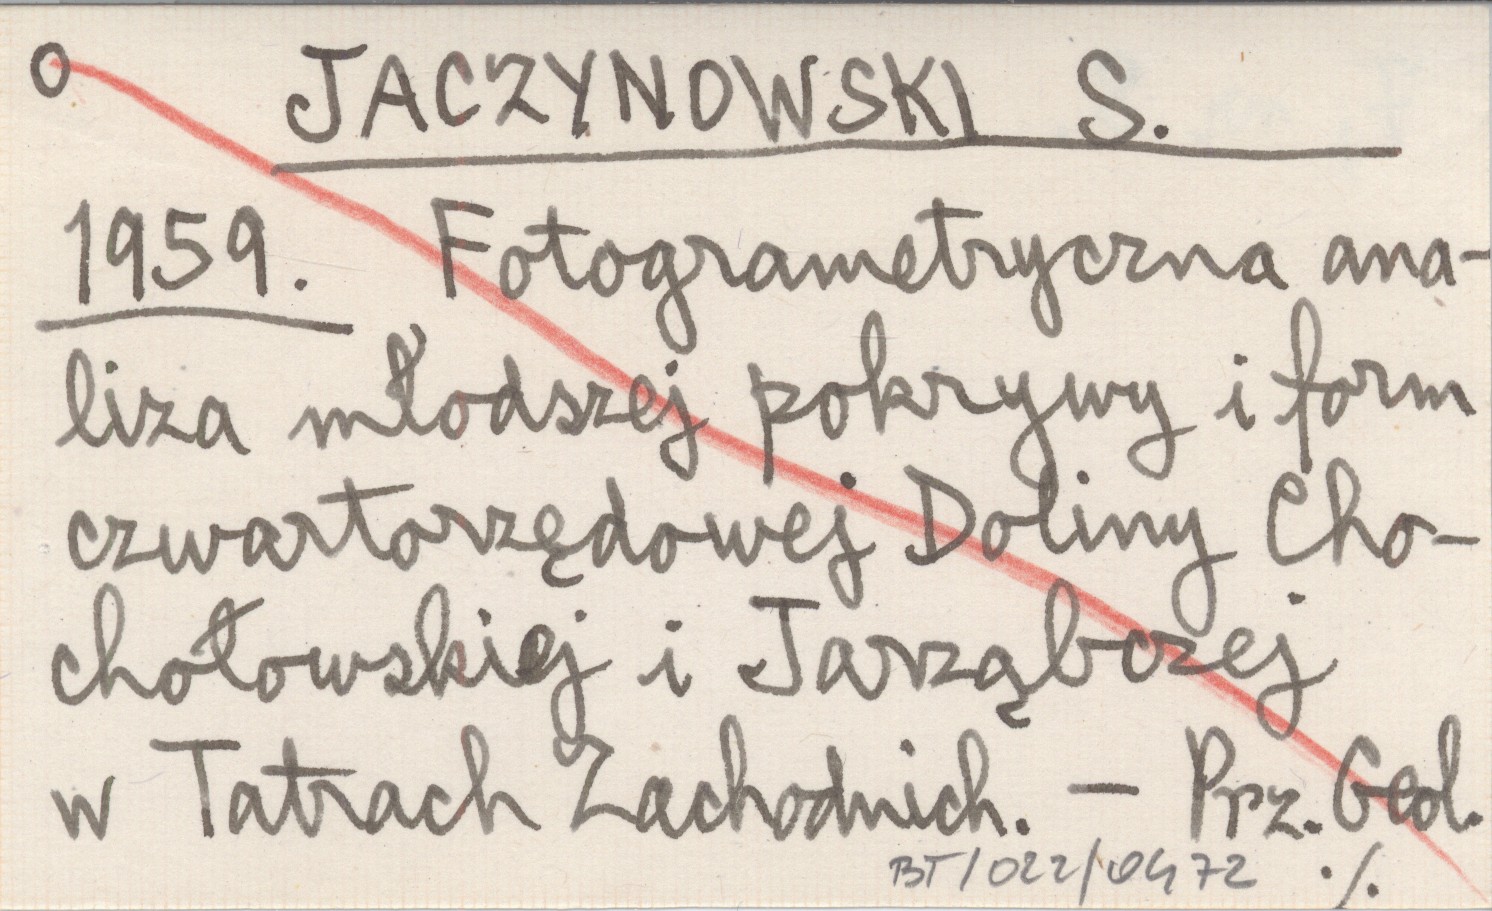 O JACZYNOWSKI S.
1959. Fotogrametryczna ana-
liza młodszej pokrywy i form
czwartorzędowej Doliny Cho-
chołowskiej i Jarząbczej
w Tatrach Zachodnich. — Prz. Geol.
BT/022/0472 ./.